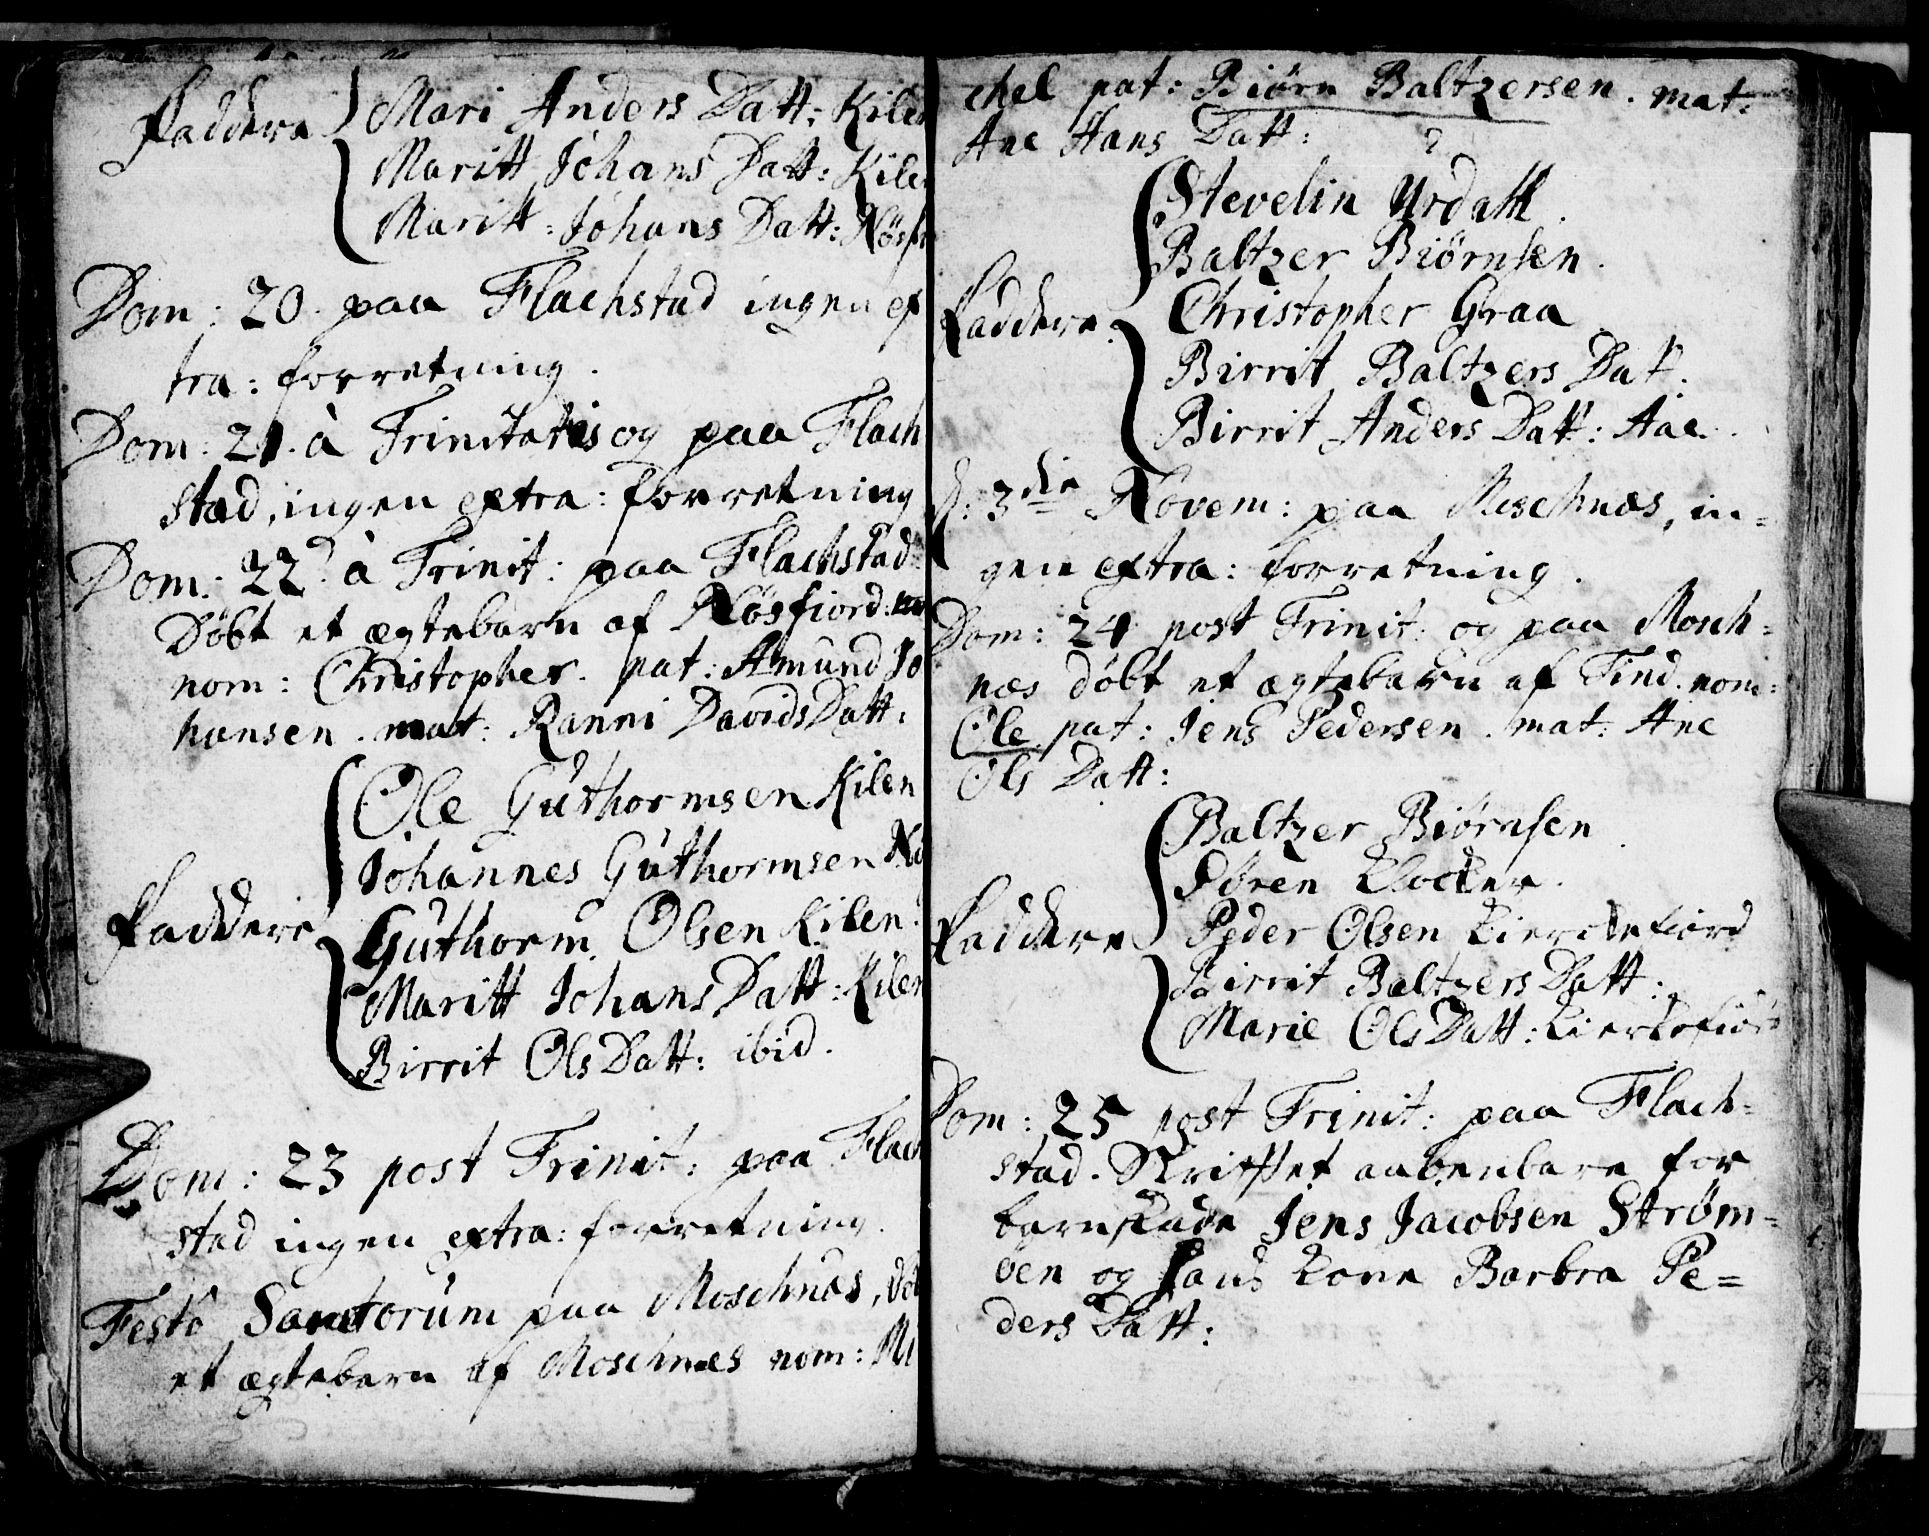 Faddere
Mari Anders Datt: Kilen
Maritt Johans Datt: Kilen
Maritt: Johans Datt: Nösfi
Dom: 20. paa Flachstad ingen ex
tra: forretning.
Dom: 21. à Trinitatis og paa Flach
stad, ingen extra: forretning
Dom: 22d. à Trinit: paa Flachstad
Døbt et ægtebarn af Nösfiord.
nom: Christopher. pat: Amund Jo
hansen. mat: Ranni Davids Datt:
Faddere
Ole Guthormsen Kilen
Johannes Guthormsen Nö
Guthorm Olsen Kilen.
Maritt Johans Datt: Kilen
Birrit Ols Datt: ibid.
Dom: 23 post Trinit: paa Flach
stad ingen extra: forretning.
Festo Sanctorum paa Moschnæs, dö
et ægtebarn af Moschnæs nom: Mi
chel pat: Biørn Baltzersen. mat:
Ane Hans Datt:
Faddere.
Stevelin Urdall.
Baltzer Biørnsen.
Christopher Graa
Birrit Baltzers Dat.
Birrit Anders Datt: Aae.
d: 3die Novem: paa Moschnæs, in=
gen extra: forretning.
Dom: 24 post Trinit: og paa Mosch=
næs døbt et ægtebarn af Tind. nom:
Ole pat: Jens Pedersen. mat: Ane
Ols Datt:
Faddere
Baltzer Biørnsen
Søren Klocker.
Peder Olsen Kierckefiord
Birrit Baltzers Datt:
Marie Ols Datt: Kierkefiord
Dom: 25 post Trinit: paa Flach=
stad. Skriftet aabenbare for
Jens Jacobsen Strøm=
øen og hans kone Barbra Pe=
ders Datt: